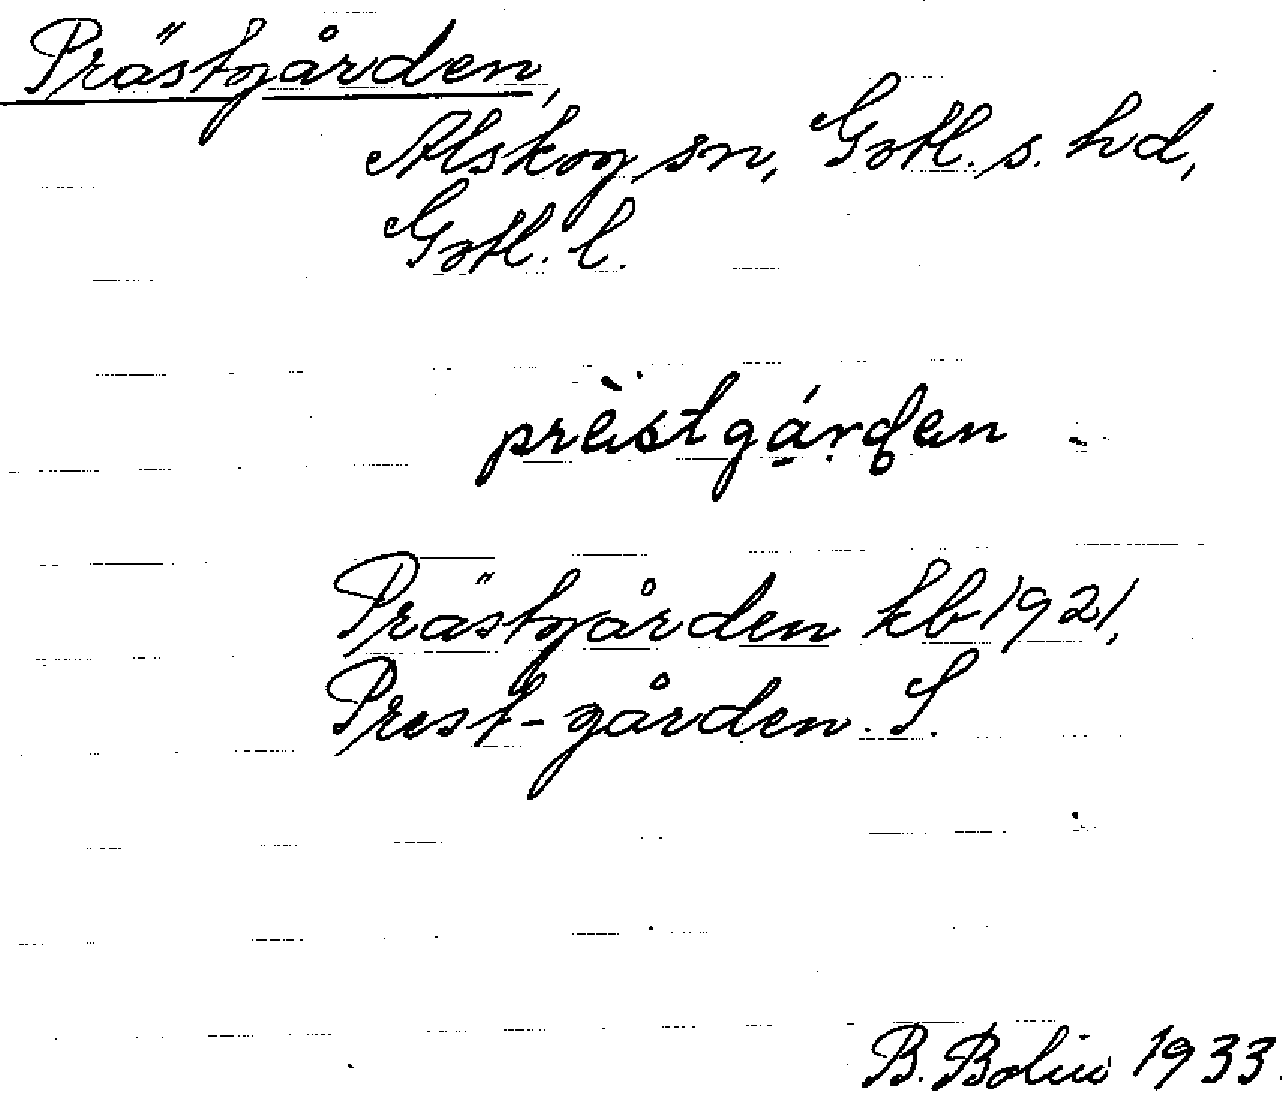 Prästgården,
Alskog sn, Gotl. s. hd,
Gotl. l.
Prästgården kb 1921,
Prest-gården. S.
B. Bolin 1933.